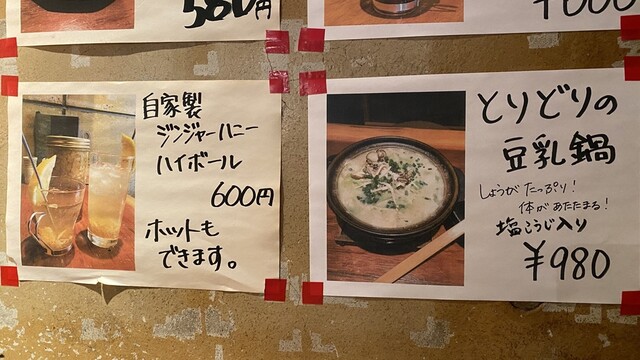 580円
自家製
ジンジャーハニー
ハイボール
600円
ホットも
できます。
とりどりの
豆乳鍋
しょうがたっぷり!
体があたたまる!
塩こうじ入り
¥980